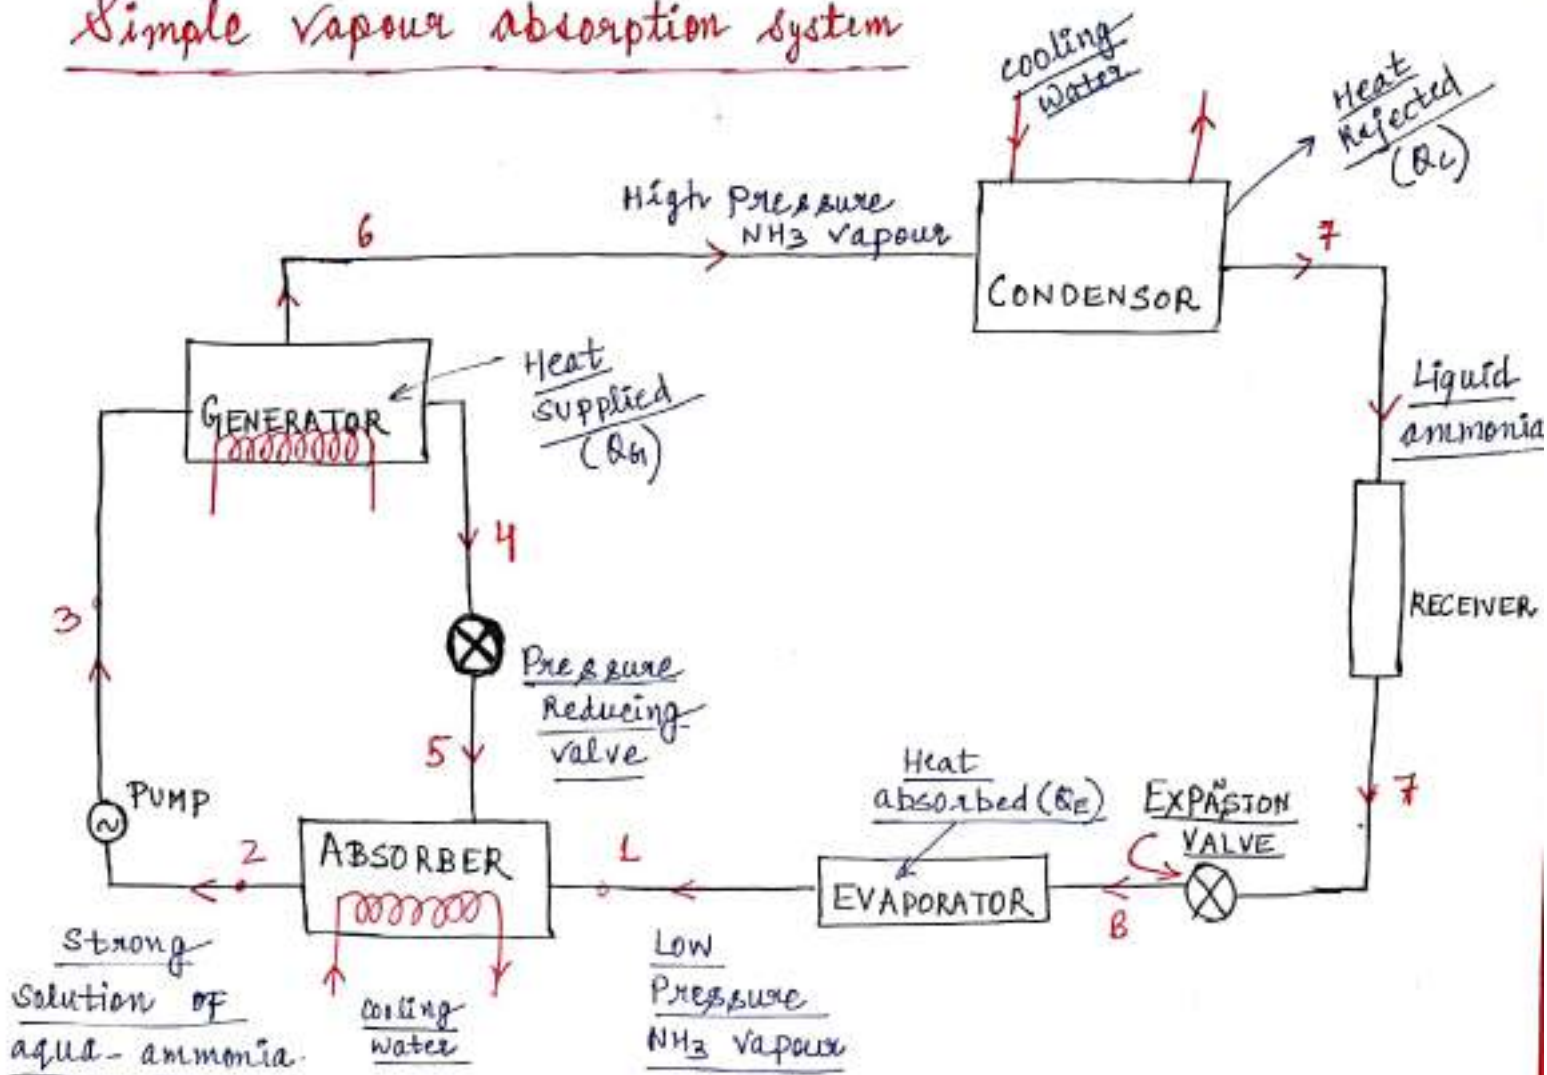 Simple Vapour absorption system
cooling
water
Heat
Rejected
(QC)
High Pressure
NH3 vapour
6
7
CONDENSOR
GENERATOR
Heat
supplied
(QG)
Liquid
ammonia
4
3
RECEIVER
Pressure
Reducing
valve
5
PUMP
Heat
absorbed (QE)
EXPANSION
VALVE
7
2
ABSORBER
1
EVAPORATOR
B
Strong
solution of
aqua-ammonia.
cooling
water
Low
Pressure
NH3 vapour